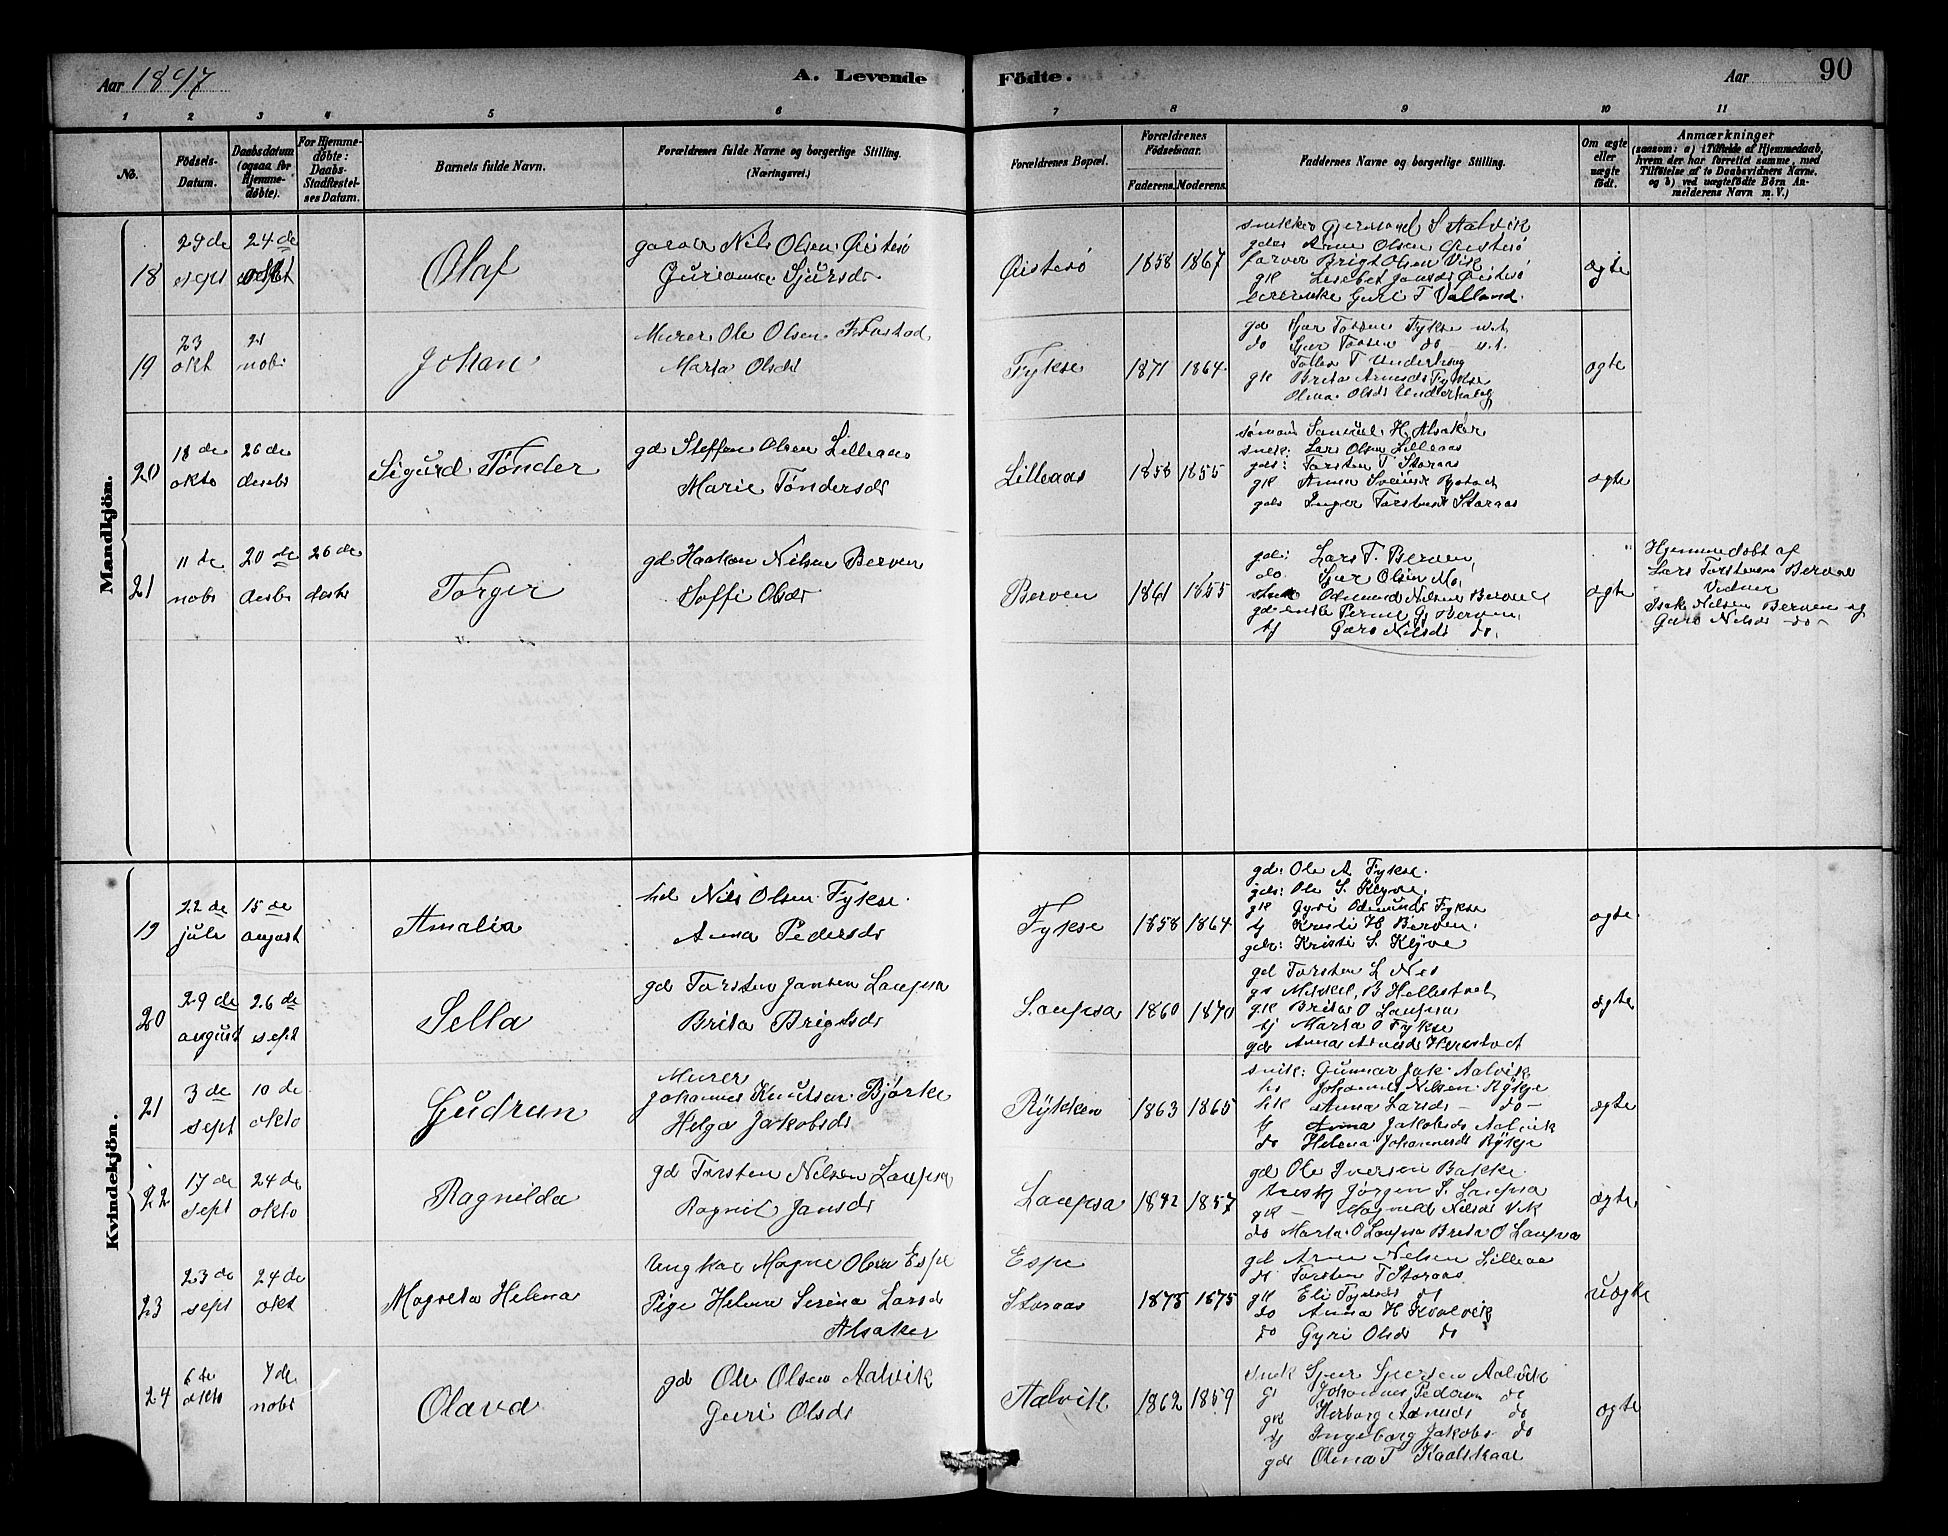 Aar 1897
A. Levende
Födte.
Aar
90
1 2 3 4 5 6 7 8 9 10 11
No.
Födsels-Datum.
Daabsdatum (ogsaa for Hjemme-döbte).
For Hjemme-döbte: Daabs-Stadfæstel-ses Datum.
Barnets fulde Navn.
Forældrenes fulde Navne og borgerlige Stilling.
(Næringsvei.)
Forældrenes Bopæl.
Forældrenes Födselsaar.
Faderens. Moderens.
Faddernes Navne og borgerlige Stilling.
Om ægte eller uægte födt.
Anmærkninger
(saasom: a) i Tilfælde af Hjemmedaab,
hvem der har forrettet samme, med
Tilföielse af to Daabsvidners Navne.
og b) ved uægtefödte Börn An-
melderens Navn m. V.)
Mandkjön.
18
29 de sept
24 de
Olaf
Nils Olsen Øistesø
Gurianna Sjursdr
Øistesø
1858 1867
snikker Gjermund S Aalvik
gds Arne Olsen Øistesø
farver Brigt Olsen Vik
gk Lisebet Jansdr Øistesø
Guri T Valland
ægte
19
23 okt
21 nobr
Johan
Murer Ole Olsen
Marta Olsdr
Fykse
1871 1864
gd Sjur Torsen Fykse
do Sjur Torsen do
Tollev T Underhaug
gk Brita Arnesdr Fykse
Olina Olsdr Underhaug
ægte
20
18 de okto
26 de desbr
Sigurd Tönder
gd Steffen Olsen Lilleaas
Marie Tøndersdr
Lilleaas
1858 1855
Samuel H. Alsaker
snek: Lars Olsen Lilleaas
gds: Torsten T Storaas
gk Anna
gds Inger Torstensdr Storaas
ægte
21
11 te nobr
20 de desbr
26 de desbr
Torger
gd Haakon Nilsen Berven
Soffi Olsdr
Berven
1861 1855
gd: Lars T. Berven,
do Sjur Olsen Mo,
Odmund Nilsen Berven
gd enke Berven,
tj Guro Nilsdr do.
ægte
Hjemmedøbt af
Lars Torstensen Berven
Vidner
Isak Nilsen Berven og
Guro Nilsdr do
Kvindekjön.
19
22 de juli
15 de august
Amalia
hd Nils Olsen Fykse.
Anna Pedersdr
Fykse
1858 1864
gd: Ole A Fykse.
gds: Ole S. Klyve.
gk Gyri Odmundsdr Fykse
tj Kristi H Berven.
gdr: Kristi S. Klyve
ægte
20
29 de august
26 de sept
Sella
gd Torsten Jansen Laupsa
Brita Brigtsdr
Laupsa
1860 1870
gd Torsten L Nes
gs Mikkel B Hellestveit
gk Brita O Laupsa
tj Marta O Fykse
gdr Anna
ægte
21
3 de sept
10 de okto
Gudrun
Murer
Johannes Knutsen Bjørke
Helga Jakobsdr
Rykken
1863 1865
snik: Gunnar Jak. Aalvik
hs Johannes Nilsen Rykje
hk Anna Larsdr do
tj Anna Jakobsdr Aalvik
do Helena Johannesdr Rykje
ægte
22
17 de sept
24 de okto
Ragnilda
gd Torsten Nilsen Laupsa
Ragnil Jansdr
Laupsa
1842 1857
gd Ole Iversen Bakke
Jørgen S. Laupsa
gk Magnild Nilsdr Vik
do Marta O Laupsa Brita O Laupsa
ægte
23
23 de sept
24 de okt
Magreta Helena
Ungkar Magne Olsen Espe
Pige Helena Serina Larsdr
Alsaker
Espe
Storaas
1875 1875
gd Arne Nilsen Lilleaas
do Torsten T Storaas
gk Eli do
do Anna H
do Gyri Olsdr do
uægte
24
6 te okto
7 de nobr
Olava
gd Ole Olsen Aalvik
Guri Olsdr
Aalvik
1862 1859
snik Sjur Sjursen Aalvik
gs Johannes Pedersen do
gk Herborg do
tj Ingeborg Jakobs do
gdr Olina T
ægte